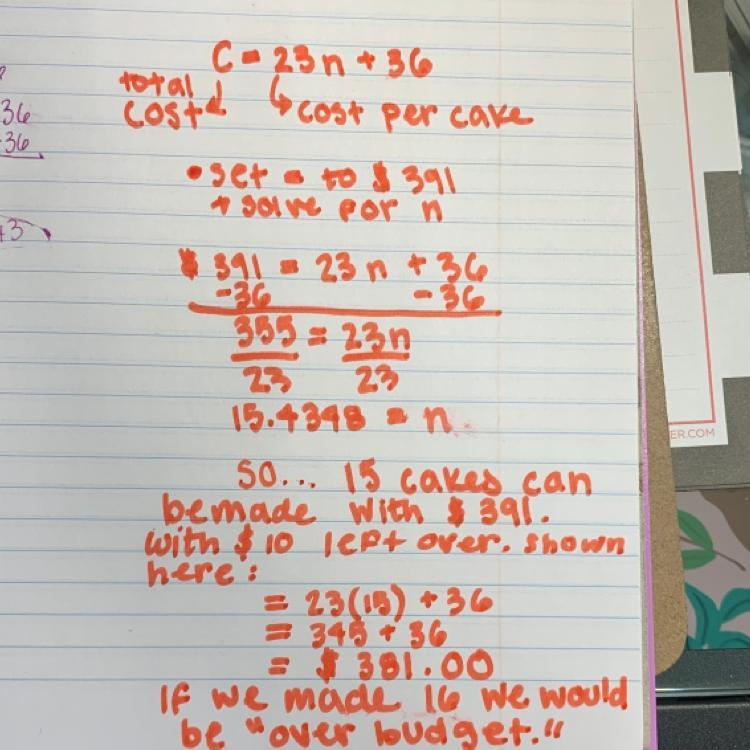 C = 23n + 36
total
cost
cost per cake
36
-36
+3
• set = to $391
+ solve for n
$391 = 23n + 36
-36 -36
355 = 23n
23 23
15.4348 = n
SO... 15 cakes can
be made with $391.
with $10 left over. shown
here:
= 23(15) + 36
= 345 + 36
= $381.00
If we made 16 we would
be "over budget."
ER.COM